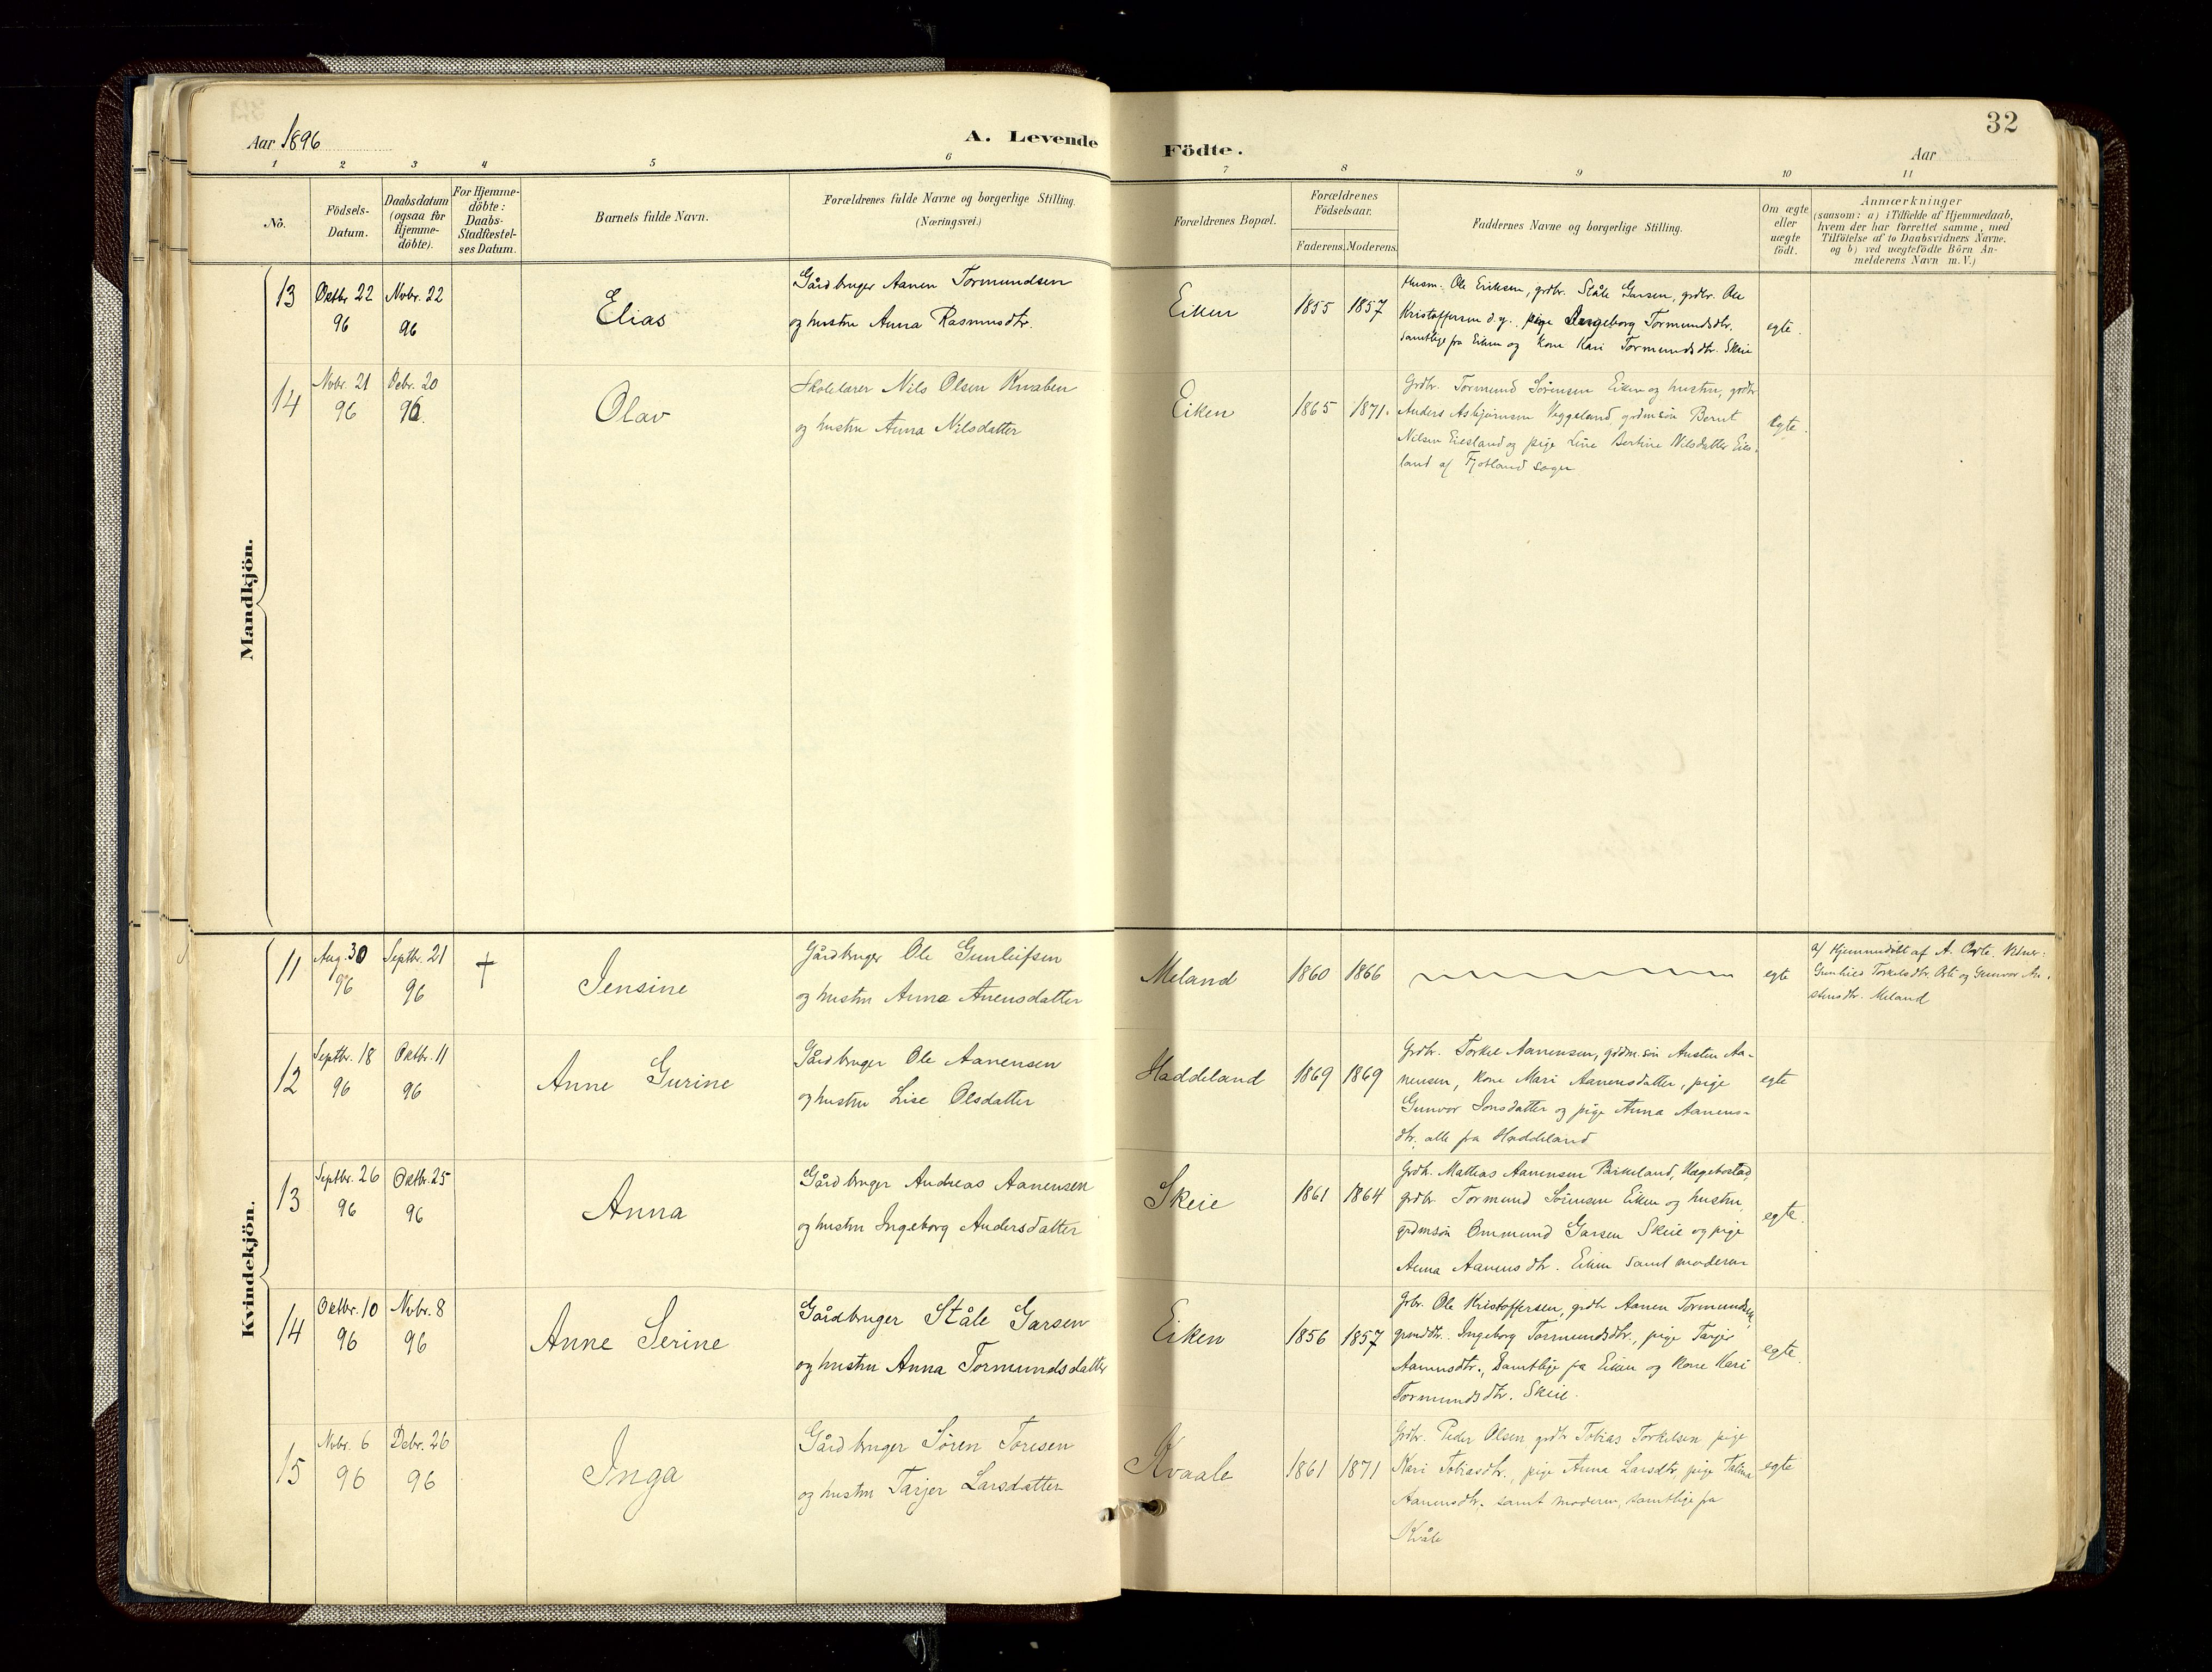 32
Aar 1896
A. Levende
Födte.
Aar
1 2 3 4 5 6 7 8 9 10 11
No.
Födsels-
Datum.
Daabsdatum
(ogsaa for
Hjemme-
döbte).
For Hjemme-
döbte:
Daabs-
Stadfæstel-
ses Datum.
Barnets fulde Navn.
Forældrenes fulde Navne og borgerlige Stilling.
(Næringsvei.)
Forældrenes Bopæl.
Forældrenes
Födselsaar.
Faderens. Moderens.
Faddernes Navne og borgerlige Stilling.
Om ægte
eller
uægte
födt.
Anmærkninger
(saasom: a) i Tilfælde af Hjemmedaab,
hvem der har forrettet samme, med
Tilföielse af to Daabsvidners Navne,
og b) ved uægtefödte Börn An-
melderens Navn m.V.)
Mandkjön.
13
Oktbr 22
96
Novbr. 22
96
Elias
Gårdbruger Aanen Tormundsen
og hustru Anna Rasmusdtr.
Eiken
1855
1857
Husm. Ole Eriksen, grdbr. Ståle Garsen, grdbr. Ole
Kristoffersen d.y., pige Ingeborg Tormundsdtr.
samtlige fra Eiken og kone Kari Tormundsdtr. Skeie
egte.
14
Novbr. 21
96
Debr. 20
96.
Olav
Skolelærer Nils Olsen Kvaben
og hustru Anna Nilsdatter
Eiken
1865
1871.
Grdbr. Tormund Sørensen Eiken og hustru, grdbr
Anders Asbjørnsen Veggeland, grdmsøn Bernt
Nilsen Eiesland og pige Line Bertine Nilsdatter Eies-
land af Fjotland sogn
egte.
Kvindekjön.
11
Aug. 30
96
Septbr. 21
96
†
Jensine
Gårdbruger Ole Gunleifsen
og hustru Anna Anensdatter
Meland
1860
1866
egte
a) Hjemmedøbt af A. Vidner:
Torkelsdtr. og Gunvor
Meland
12
Septbr. 18
96
Oktbr. 11
96
Anne Gurine
Gårdbruger Ole Aanensen
og hustru Lise Olsdatter
Haddeland
1869
1869
Grdbr. Torkel Aanensen, grdm.søn Austen Aa-
nensen, kone Mari Aanensdatter, pige
Gunvor Jonsdatter og pige Anna Aanens-
dtr. alle fra Haddeland
egte
13
Septbr. 26
96
Oktbr. 25
96
Anna
Gårdbruger Andreas Aanensen
og hustru Ingeborg Andersdatter
Skeie
1861
1864
Grdb. Mathias Aanensen Birkeland, Hægebostad,
grdbr Tormund Sørensen Eiken og hustru,
grdmsøn Ommund Garsen Skeie og pige
Anna Aanensdtr. Eiken samt moderen
egte.
14
Oktbr. 10
96
Novbr. 8
96
Anne Serine
Gårdbruger Ståle Garsen
og hustru Anna Tormundsdatter
Eiken
1856
1857
Grbr. Ole Kristoffersen, grdb Aanen Tormundsen,
grmddtr. Ingeborg Tormundsdtr., pige Tarjer
Aanensdtr., samtlige fra Eiken og kone Kari
Tormundsdtr. Skeie.
egte.
15
Novbr. 6
96
Debr. 26
96
Inga
Gårdbruger Søren Toresen
og hustru Tarjer Larsdatter
Kvaale
1861
1871
Grdbr. Peder Olsen grdb Tobias Torkelsen pige
Kari Tobiasdtr., pige Anna Larsdtr, pige Talina
Aanensdtr. samt moderen, samtlige fra
Kvåle
egte